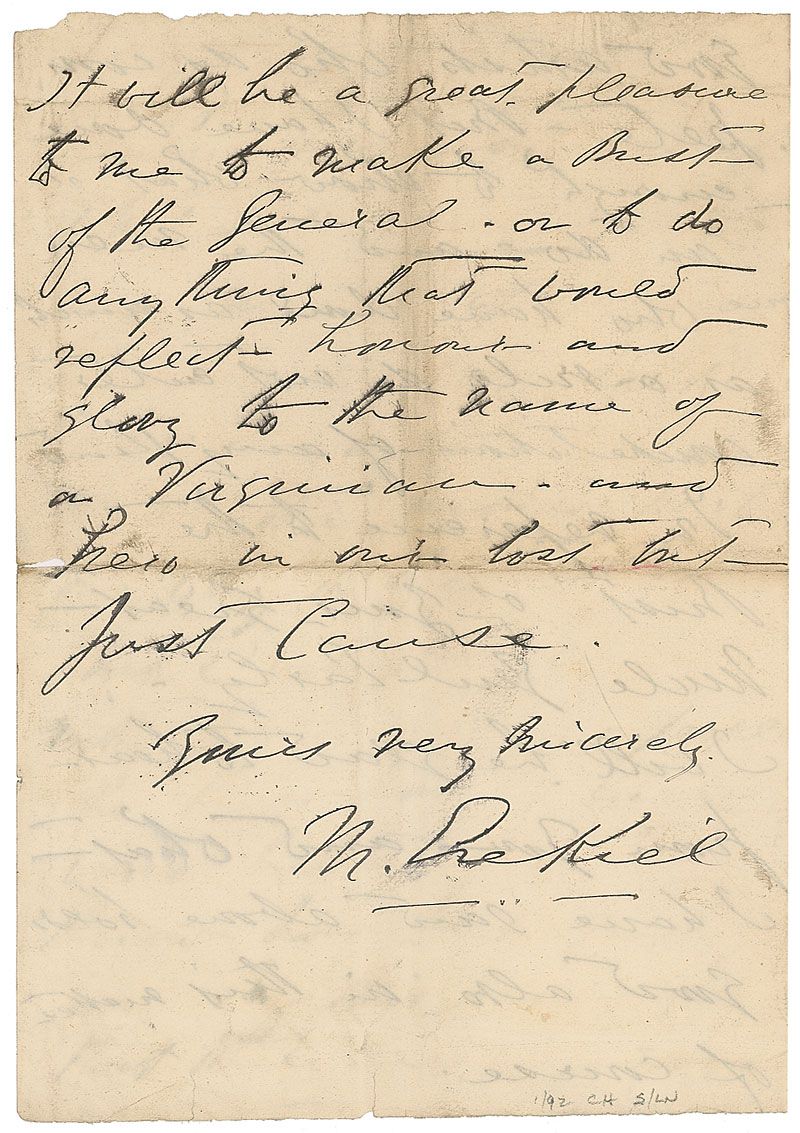 It will be a great pleasure
to me to make a Bust
of the General - or to do
anything that would
reflect honour and
glory to the name of
a Virginian - and
hero in our lost but
Just Cause.
Yours very sincerely.
M. Ezekiel
1/92 CH S/LN